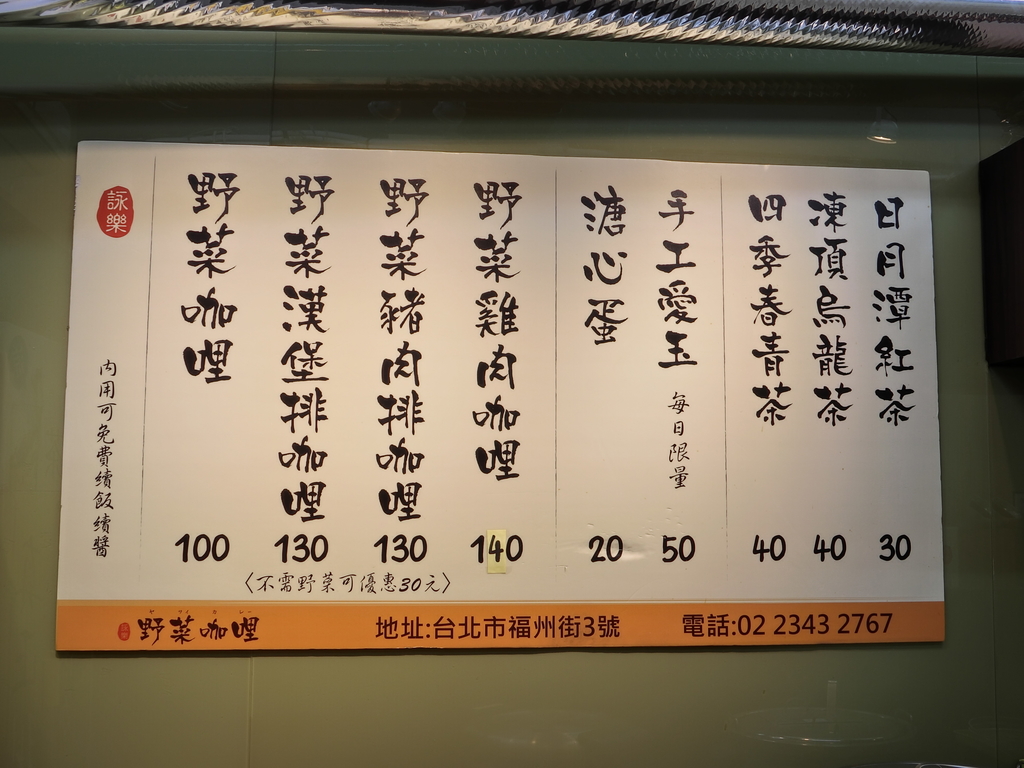 詠樂
內用可免費續飯續醬
野菜咖哩
100
野菜漢堡排咖哩
130
野菜豬肉排咖哩
130
野菜雞肉咖哩
140
〈不需野菜可優惠30元〉
溏心蛋
20
手工愛玉 每日限量
50
四季春青茶
40
凍頂烏龍茶
40
日月潭紅茶
30
野菜咖哩
地址:台北市福州街3號
電話:02 2343 2767